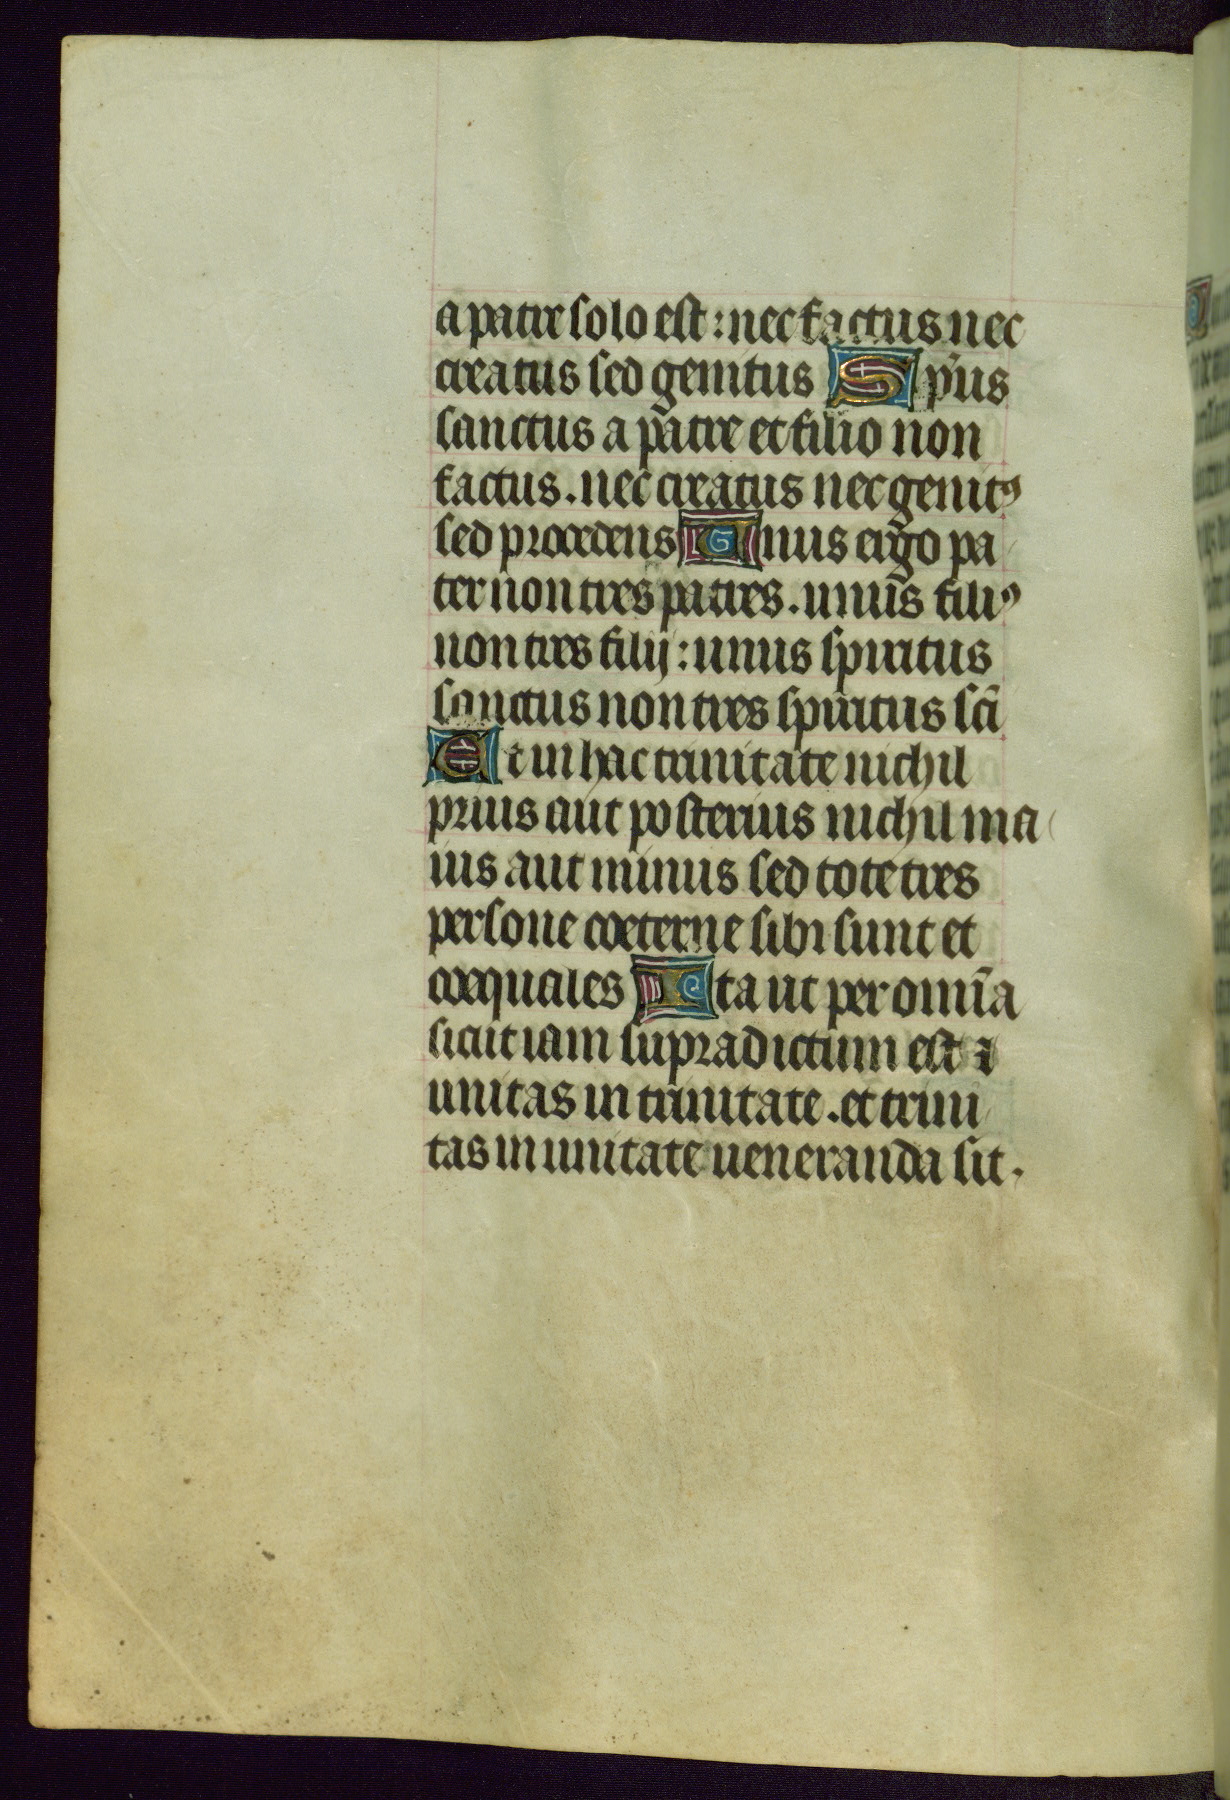 a patre solo est : nec factus nec
creatus sed genitus Sp̄us
sanctus a patre et filio non
factus . nec creatus nec genitꝰ
sed procedens Unus ergo pa
ter non tres patres . unus filiꝰ
non tres filij : unus spiritus
sanctus non tres spiritus sc̄i
Et in hac trinitate nichil
prius aut posterius nichil ma
ius aut minus sed tote tres
persone coeterne sibi sunt et
coequales Ita ut per omnīa
sicut iam supradictum est ⁊
unitas in trinitate . et trini
tas in unitate ueneranda sit .